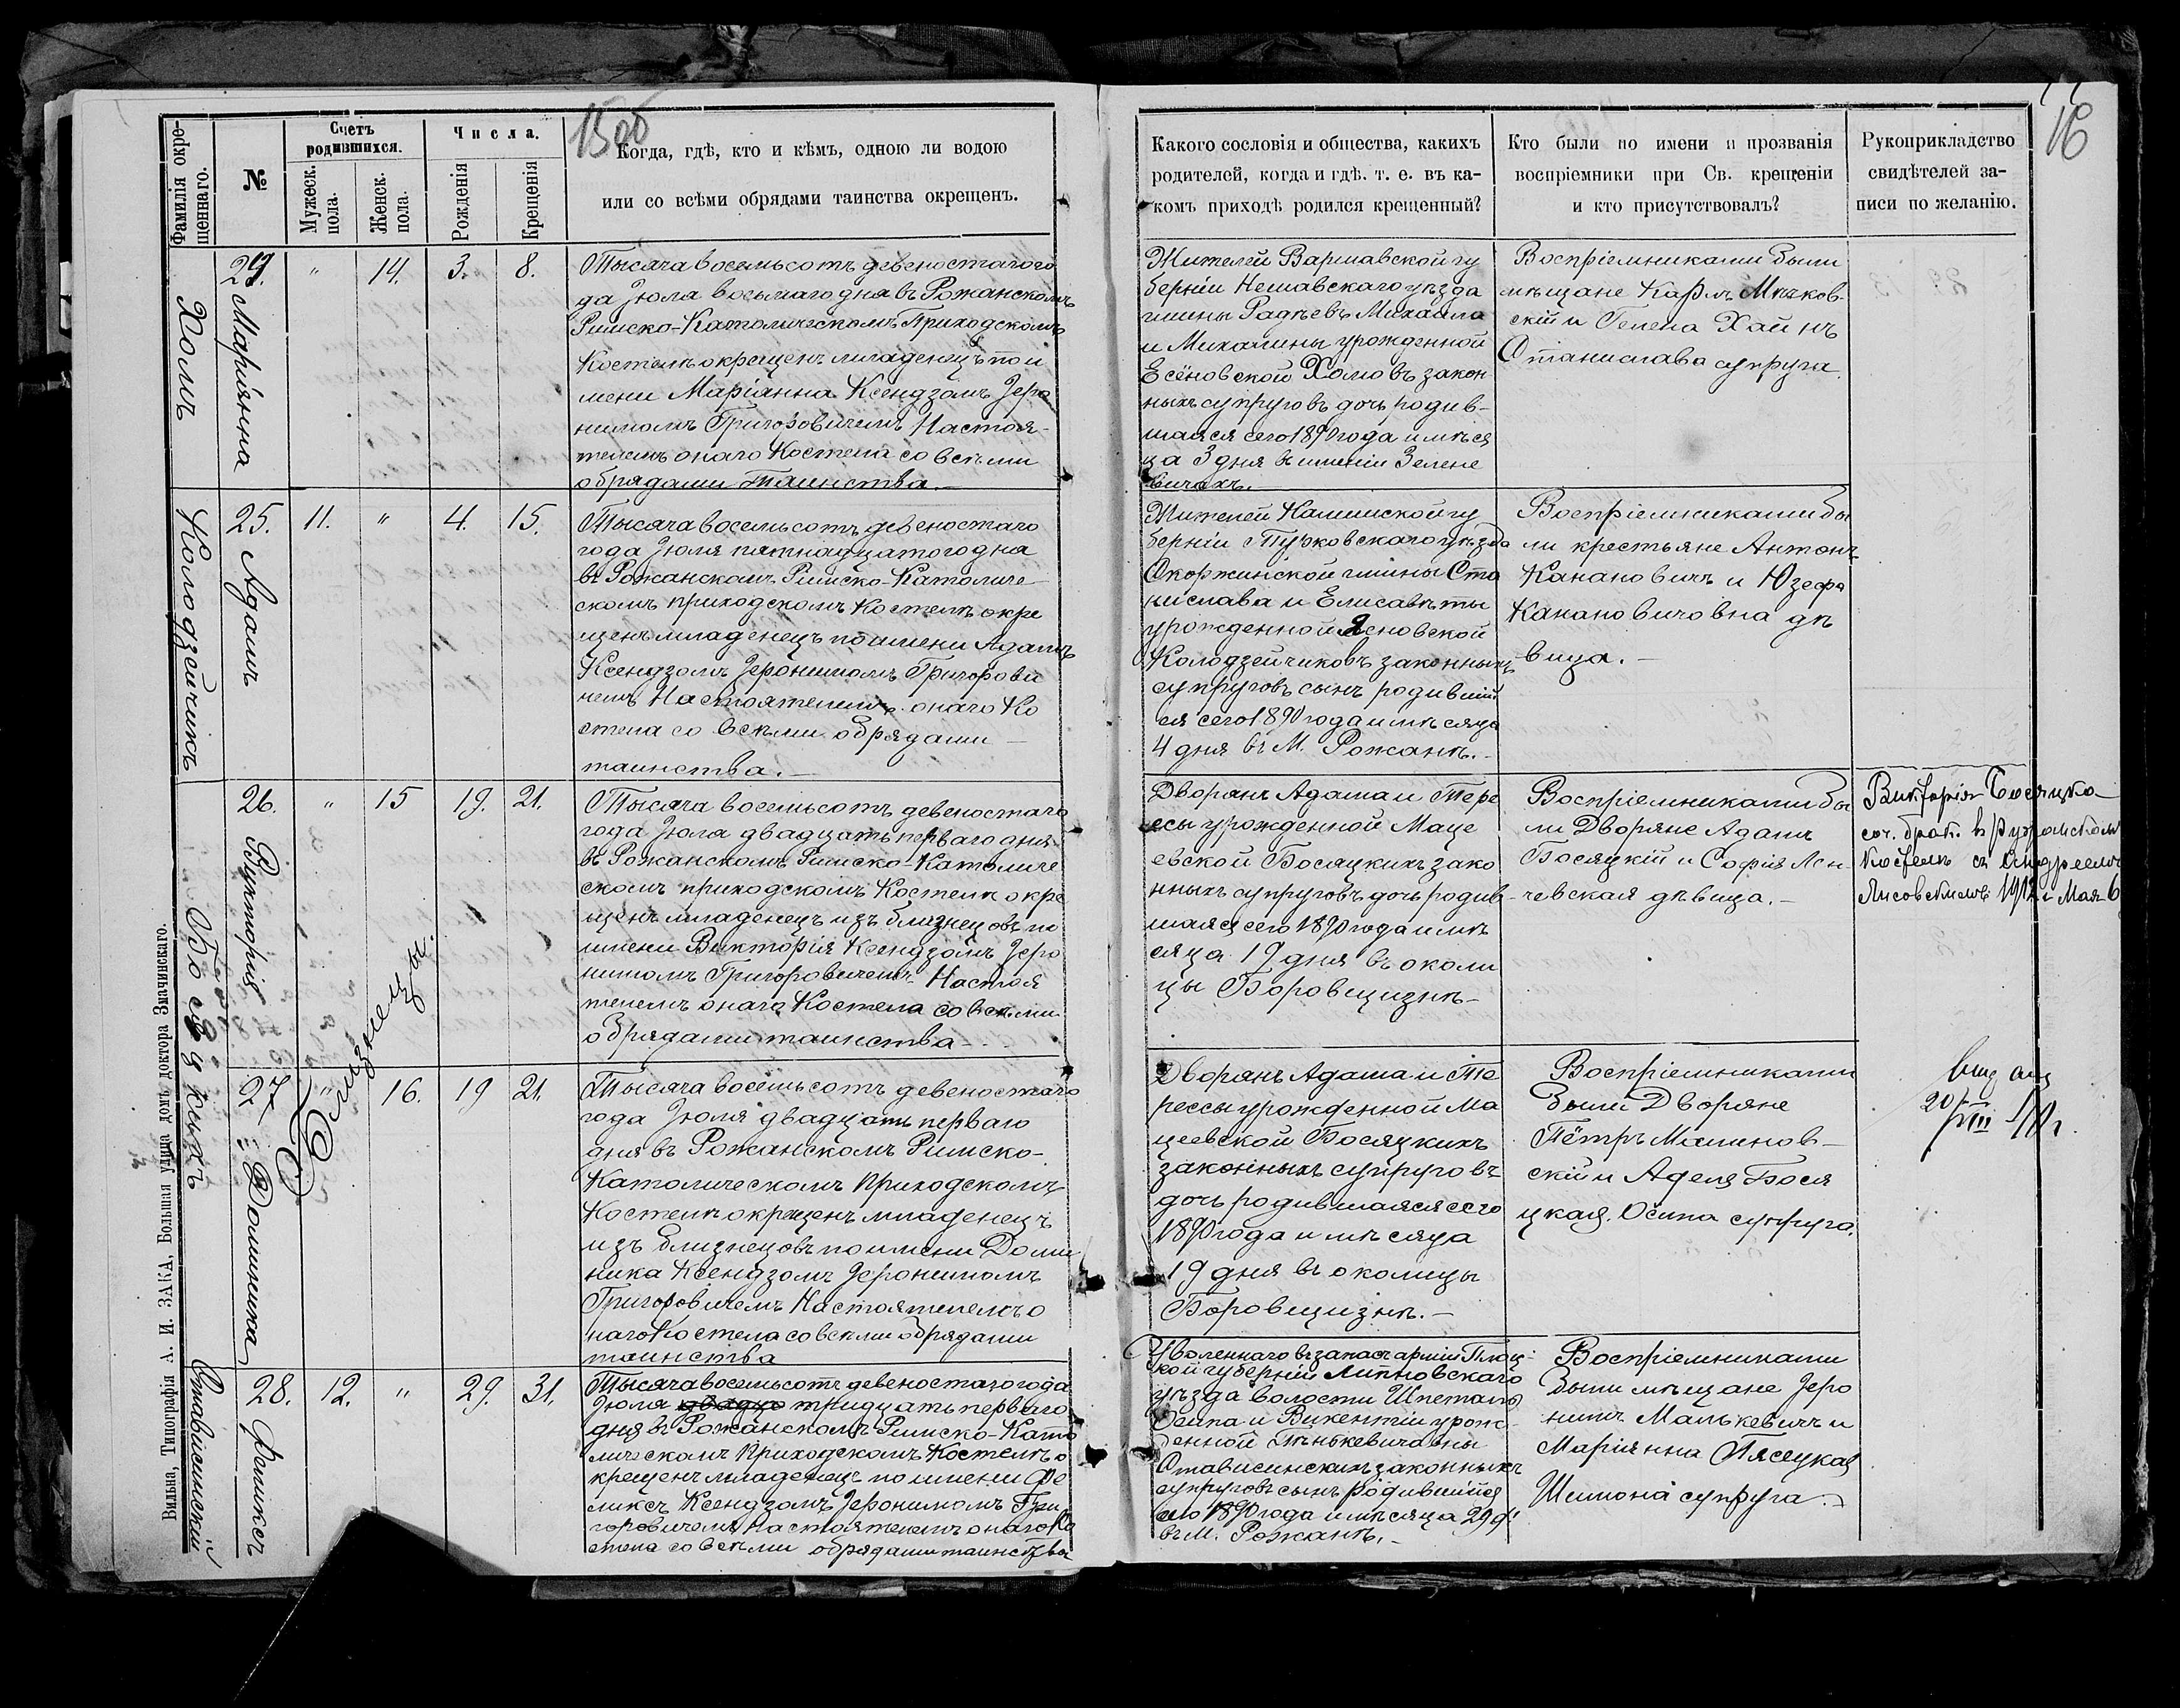 1500
16
Фамилія окре-
щеннаго.
№
Счетъ
родившихся.
Мужеск.
пола.
Женск.
пола.
Числа.
Рожденія
Крещенія
Когда, гдѣ, кто и кѣмъ, одною ли водою
или со всѣми обрядами таинства окрещенъ.
Какого сословія и общества, какихъ
родителей, когда и гдѣ, т. е. въ ка-
комъ приходѣ родился крещенный?
Кто были по имени и прозванія
воспріемники при Св. крещеніи
и кто присутствовалъ?
Рукоприкладство
свидѣтелей за-
писи по желанію.
Холмъ
24.
Маріянна
"
14.
3.
8.
Тысяча восемьсотъ девеностаго го
да Іюля восьмаго дня въ Рожанскомъ
Римско-Католическомъ Приходскомъ
Костелѣ окрещенъ младенецъ по и
мени Маріанна Ксендзомъ Іеро
нимомъ Григоровичемъ Настоя-
телемъ онаго Костела со всѣми
обрядами Таинства.-
Жителей Варшавской гу
берніи Нешавскаго уѣзда
гмины Радѣевъ Михаила
и Михалины урожденной
Есёновской Холмовъ закон
ныхъ супруговъ дочь родив-
шаяся сего 1890 года и мѣся
ца 3 дня в имѣніи Зелене
вичахъ.-
Воспріемниками были
мѣщане Карлъ Мѣков-
скій и Гелена Хаинъ
Станислава супруга.
Колодзейчикъ
25.
Адамъ
11.
"
4.
15.
Тысяча восемьсотъ девеностаго
года Іюля пятнадцатого дня
въ Рожанскомъ Римско-Католиче-
скомъ приходскомъ Костелѣ окре
щенъ младенецъ по имени Адамъ
Ксендзомъ Іеронимомъ Григорови
чемъ Настоятелемъ онаго Ко
стела со всѣми обрядами -
таинства.-
Жителей Калишской гу
берніи Турковскаго уѣзда
Скоржинской гмины Ста
нислава и Елисаветы
урожденной Ясновской
Колодзейчиковъ законныхъ
супруговъ сынъ родившій
ся сего 1890 года и мѣсяца
4 дня въ М. Рожанкѣ.-
Воспріемниками бы
ли крестьяне Антонъ
Канановичъ и Юзефа
Канановичовна дѣ
вица.-
Босяцкихъ
26.
Викторія
Близнецы.
"
15
19.
21.
Тысяча восемьсотъ девеностаго
года Іюля двадцать перваго дня
въ Рожанскомъ Римско-Католиче
скомъ приходскомъ Костелѣ окре
щенъ младенецъ изъ близнецовъ по
имени Викторія Ксендзомъ Іеро
нимомъ Григоровичемъ Настоя
телемъ онаго Костела со всѣми
обрядами таинства-
Дворянъ Адама и Тере
есы урожденной Маце
евской Босяцкихъ зако
нныхъ супруговъ дочь родив-
шаяся сего 1890 года и мѣ
сяца 19 дня въ околи
цы Боровщизнѣ-
Воспріемниками бы
ли Дворяне Адамъ
Босяцкій и Софія Лен-
чевская дѣвица.-
Викторія Босяцко-
соч. брак. в Ружанскомъ
Костелѣ съ Андреемъ
Лисовскимъ 1912 г. Мая 6
27.
Доминика
"
16.
19
21.
Тысяча восемьсотъ девеностаго
года Іюля двадцать перваго
дня въ Рожанскомъ Римско-
Католическомъ приходскомъ
Костелѣ окрещенъ младенецъ
изъ близнецовъ по имени Доми
ника Ксендзомъ Іеронимомъ
Григоровичемъ Настоятелемъ о
наго Костела со всѣми обрядами
таинства
Дворянъ Адама и Те
рессы урожденной Ма
цеевской Босяцкихъ
законныхъ супруговъ
дочь родившаяся сего
1890 года и мѣсяца
19 дня въ околицы
Боровщизнѣ.-
Воспріемниками
были Дворяне
Пётръ Малинов-
скій и Аделя Бося
цкая. Осипа супруга.
20
Ставсисинскій
28.
Феликсъ
12.
"
29.
31.
Тысяча восемьсотъ девеностаго года
Іюля тридцать перваго
дня въ Рожанскомъ Римско-Като
лическомъ Приходскомъ Костелѣ о
крещенъ младенецъ по имени Фе
ликсъ Ксендзомъ Іеронимомъ Гри
горовичемъ Настоятелемъ онаго Ко
стела со всѣми обрядами таинства
Уволеннаго въ запасъ арміи Плоц-
кой губерніи Липновскаго
уѣзда волости Шпеталь
Осипа и Викентіи урож-
денной Пѣнькевичовны
Стависинскихъ законныхъ
супруговъ сынъ родившійся
сего 1890 года и мѣсяца 29 д.
въ М. Рожанкѣ.-
Воспріемниками
были мѣщане Іеро
нимъ Малькевичъ и
Маріянна Пясецкая
Шимона супруга.-
Вильна, Типографія А. И. ЗАКА, Большая улица домъ доктора Змачинскаго.